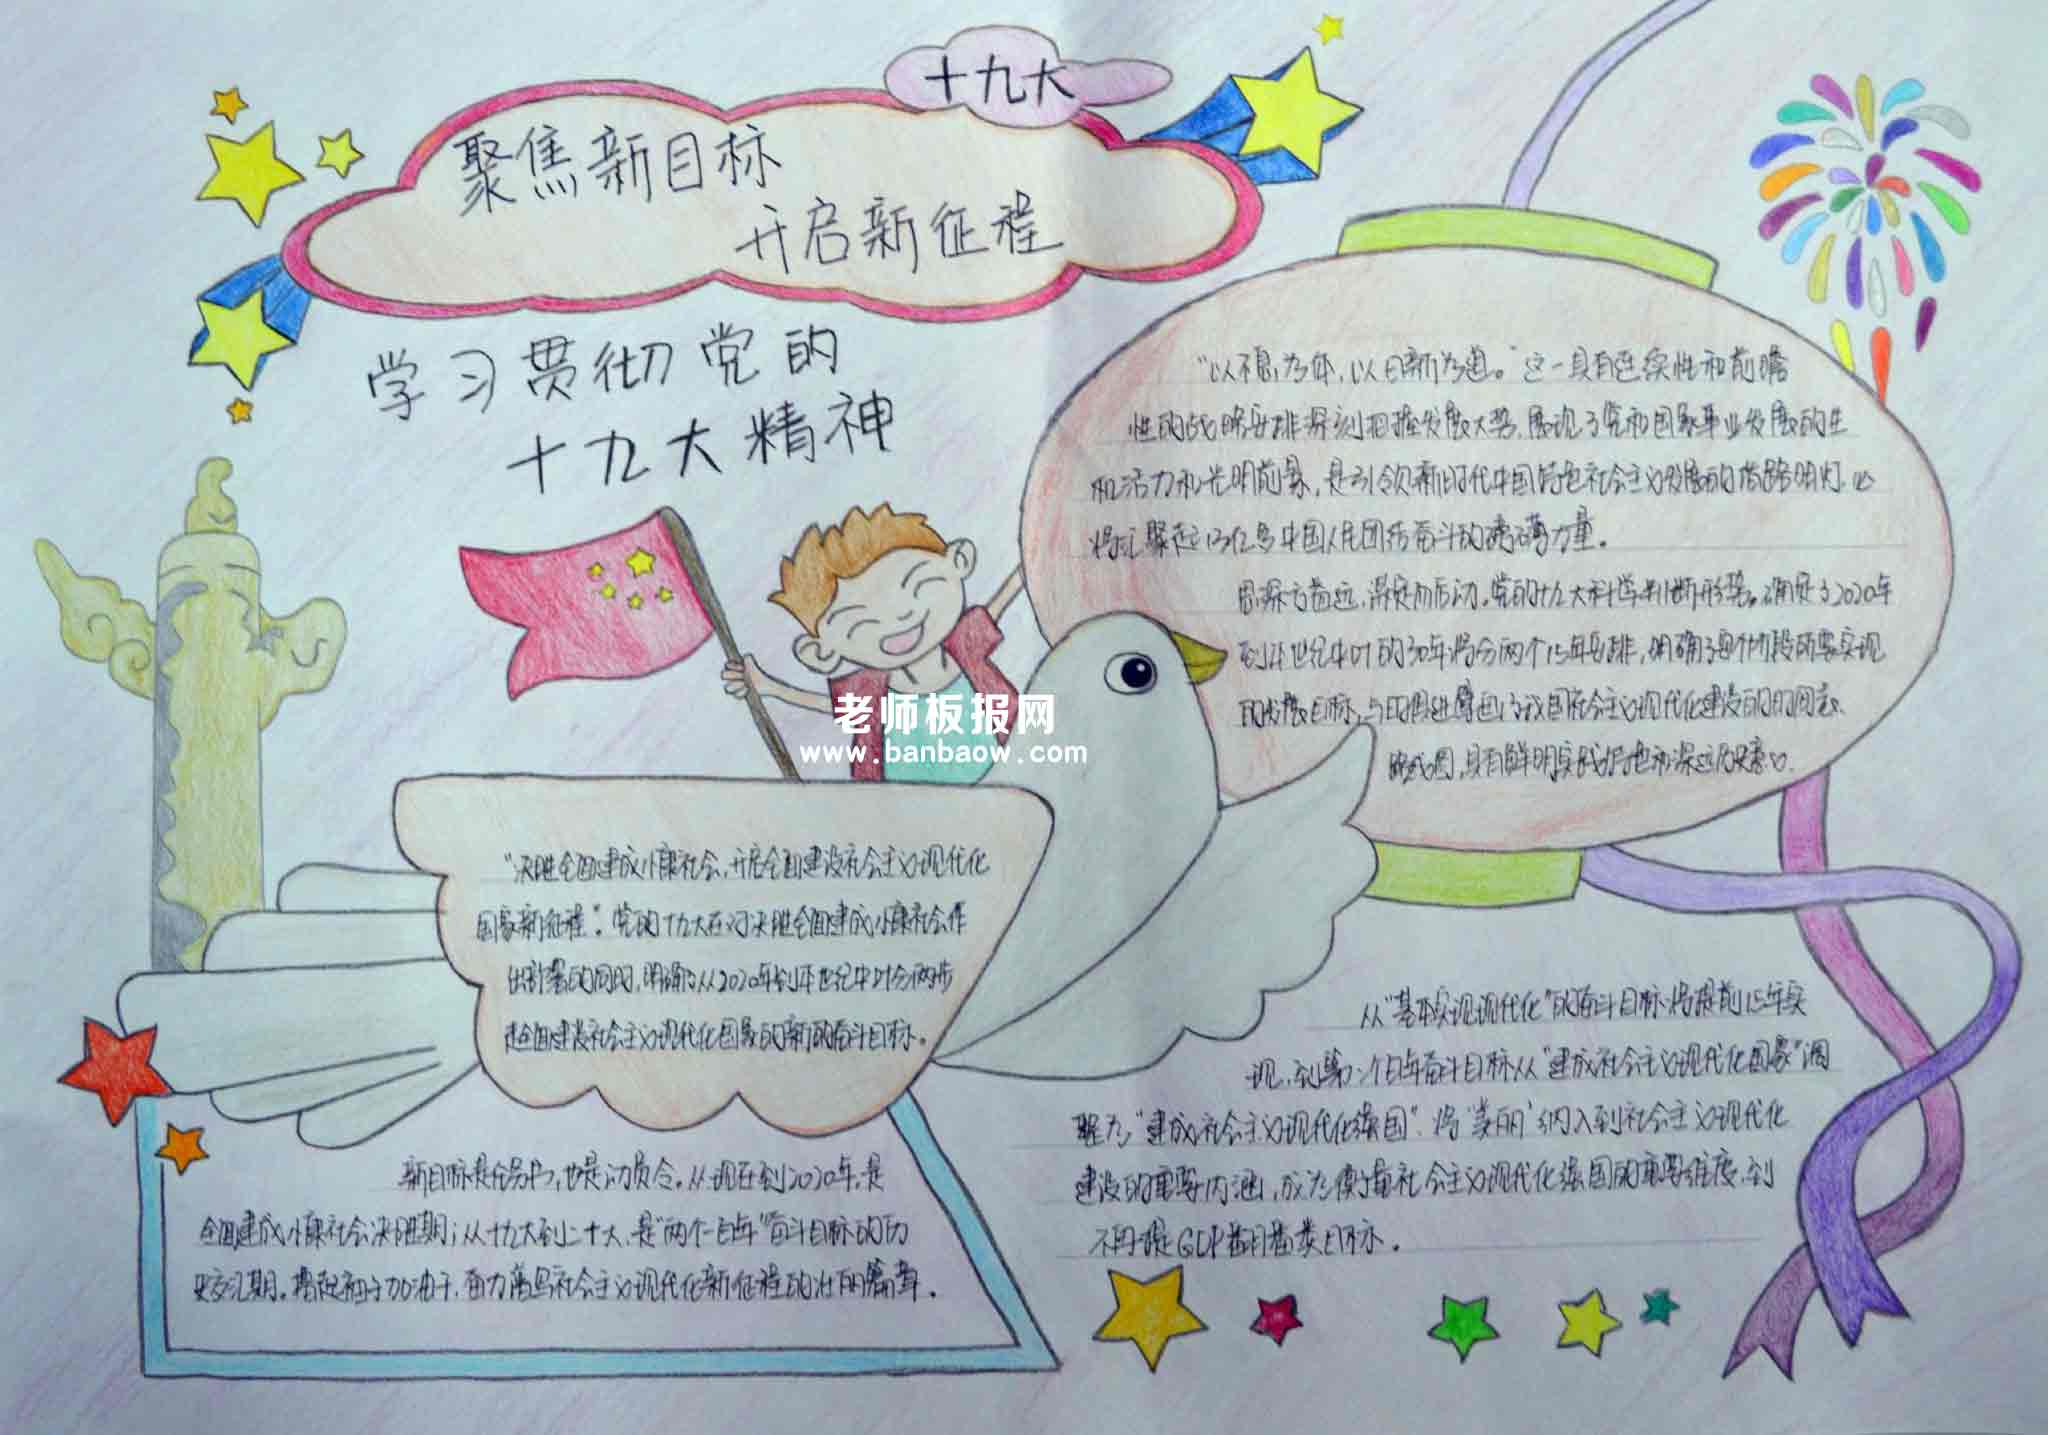 十九大
聚焦新目标
开启新征程
学习贯彻党的
十九大精神
"以不息为体，以日新为道。"这一具有连续性和前瞻
性的战略安排深刻把握发展大势，展现了党和国家事业发展的生
机活力和光明前景，是引领新时代中国特色社会主义发展的指路明灯，必
将汇聚起13亿多中国人民团结奋斗的磅礴力量。
思深方益远，谋定而后动。党的十九大科学判断形势。确定了2020年
到本世纪中叶的30年将分两个15年安排，明确了每个阶段所要实现
的发展目标，与时俱进擘画了我国社会主义现代化建设的时间表、
路线图，具有鲜明实践和深远历史意义。
老师板报网
www.banbaow.com
"决胜全面建成小康社会，开启全面建设社会主义现代化
国家新征程"。党的十九大在对决胜全面建成小康社会作
出部署的同时，明确了从2020年到本世纪中叶分两步
走全面建设社会主义现代化国家的新的奋斗目标。
从"基本实现现代化"的奋斗目标将提前15年实
现，到第二个百年奋斗目标从"建成社会主义现代化国家"调
整为"建成社会主义现代化强国"，将"美丽"纳入到社会主义现代化
建设的重要内涵，成为衡量社会主义现代化强国的重要维度，到
不再提GDP翻番类目标。
新目标是任务书，也是动员令。从现在到2020年，是
全面建成小康社会决胜期；从十九大到二十大，是"两个一百年"奋斗目标的历
史交汇期。撸起袖子加油干，奋力谱写社会主义现代化新征程的壮丽篇章。